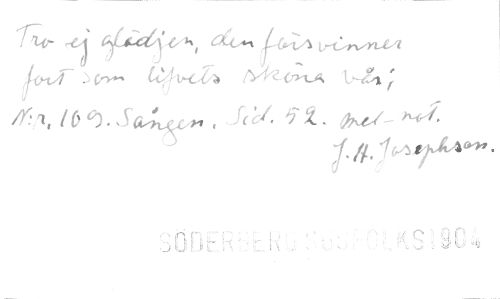 Tro ej glädjen, den försvinner
fort som lifvets sköna vår;
N:r. 109. Sången. Sid. 52. mel-not.
J. A. Josephson.
SÖDERBERG 1904